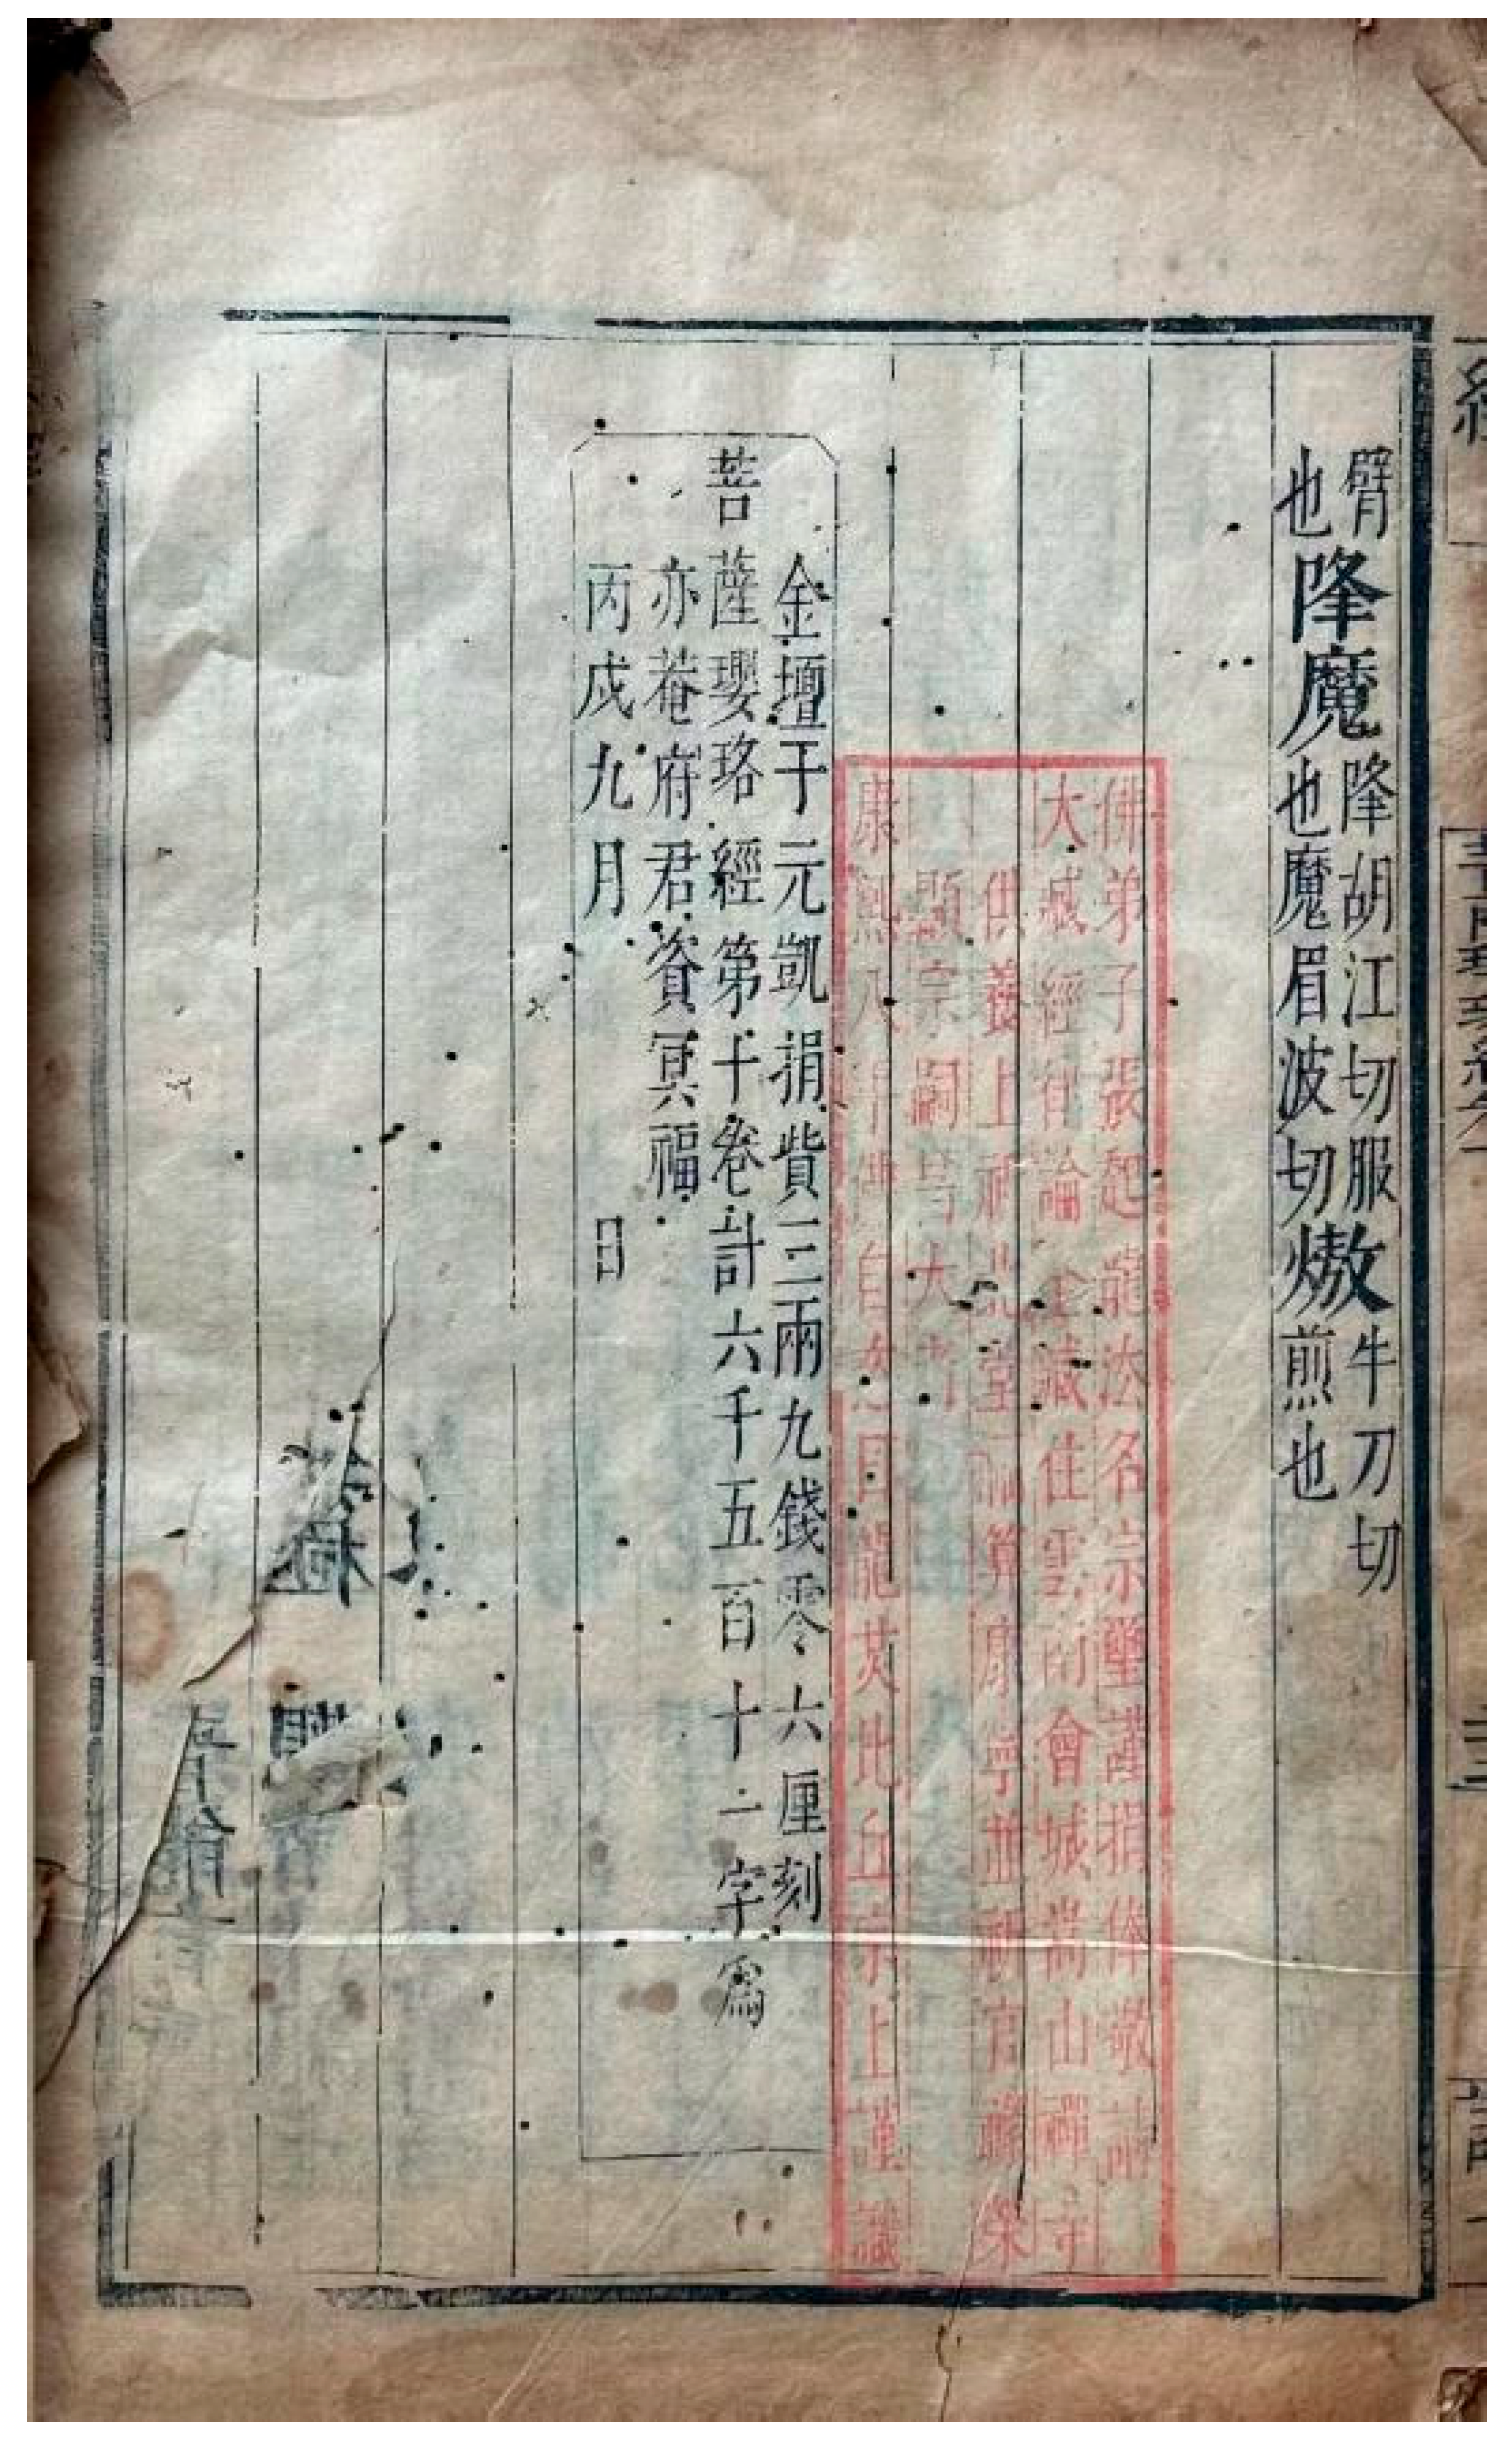 臂
也
降魔
降胡江切服
也魔眉波切
熬
牛刀切
煎也
佛弟子張起龍法名宗璽謹捐俸敬請
大藏經律論全藏住雲南會城嵩山禪寺
供養上祈北堂福算康寧並祈官祿榮
顯宗嗣昌大
康熙八年佛自恣日龍英比丘宗上謹識
金壇于元凱捐貲三兩九錢零六厘刻
菩薩瓔珞經第十卷計六千五百十二字爲
亦菴府君資冥福
丙戌九月 日